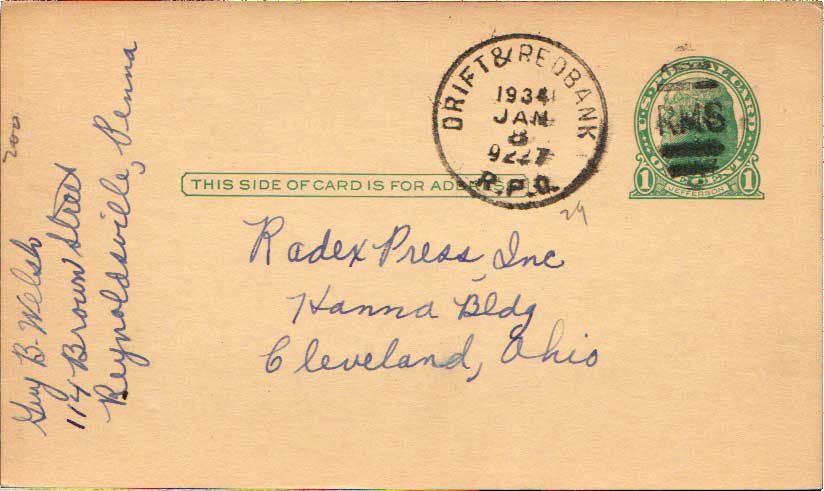 Guy B. Welsh
114 Brown Street
Reynoldsville, Penna
200
DRIFT & REDBANK
1934
JAN
8
9227
R.P.O.
U.S. POSTAL CARD
RMS
1 1
JEFFERSON
THIS SIDE OF CARD IS FOR
29
Radex Press, Inc
Hanna Bldg
Cleveland, Ohio